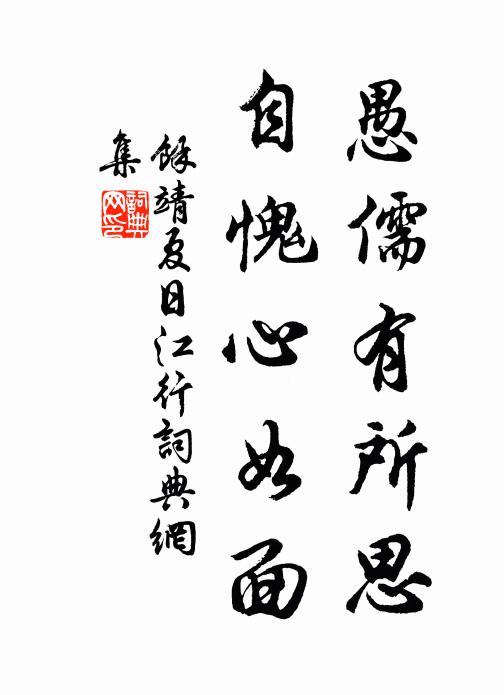 愚儒有所思
自愧心如面
餘靖夏日江行詞典網
集
詞典网印